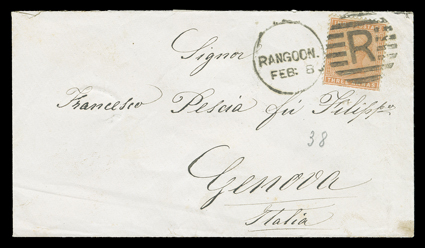 Signor
RANGOON.
FEB: 8
R
Francesco Pescia fu Filippo
38
Genova
Italia